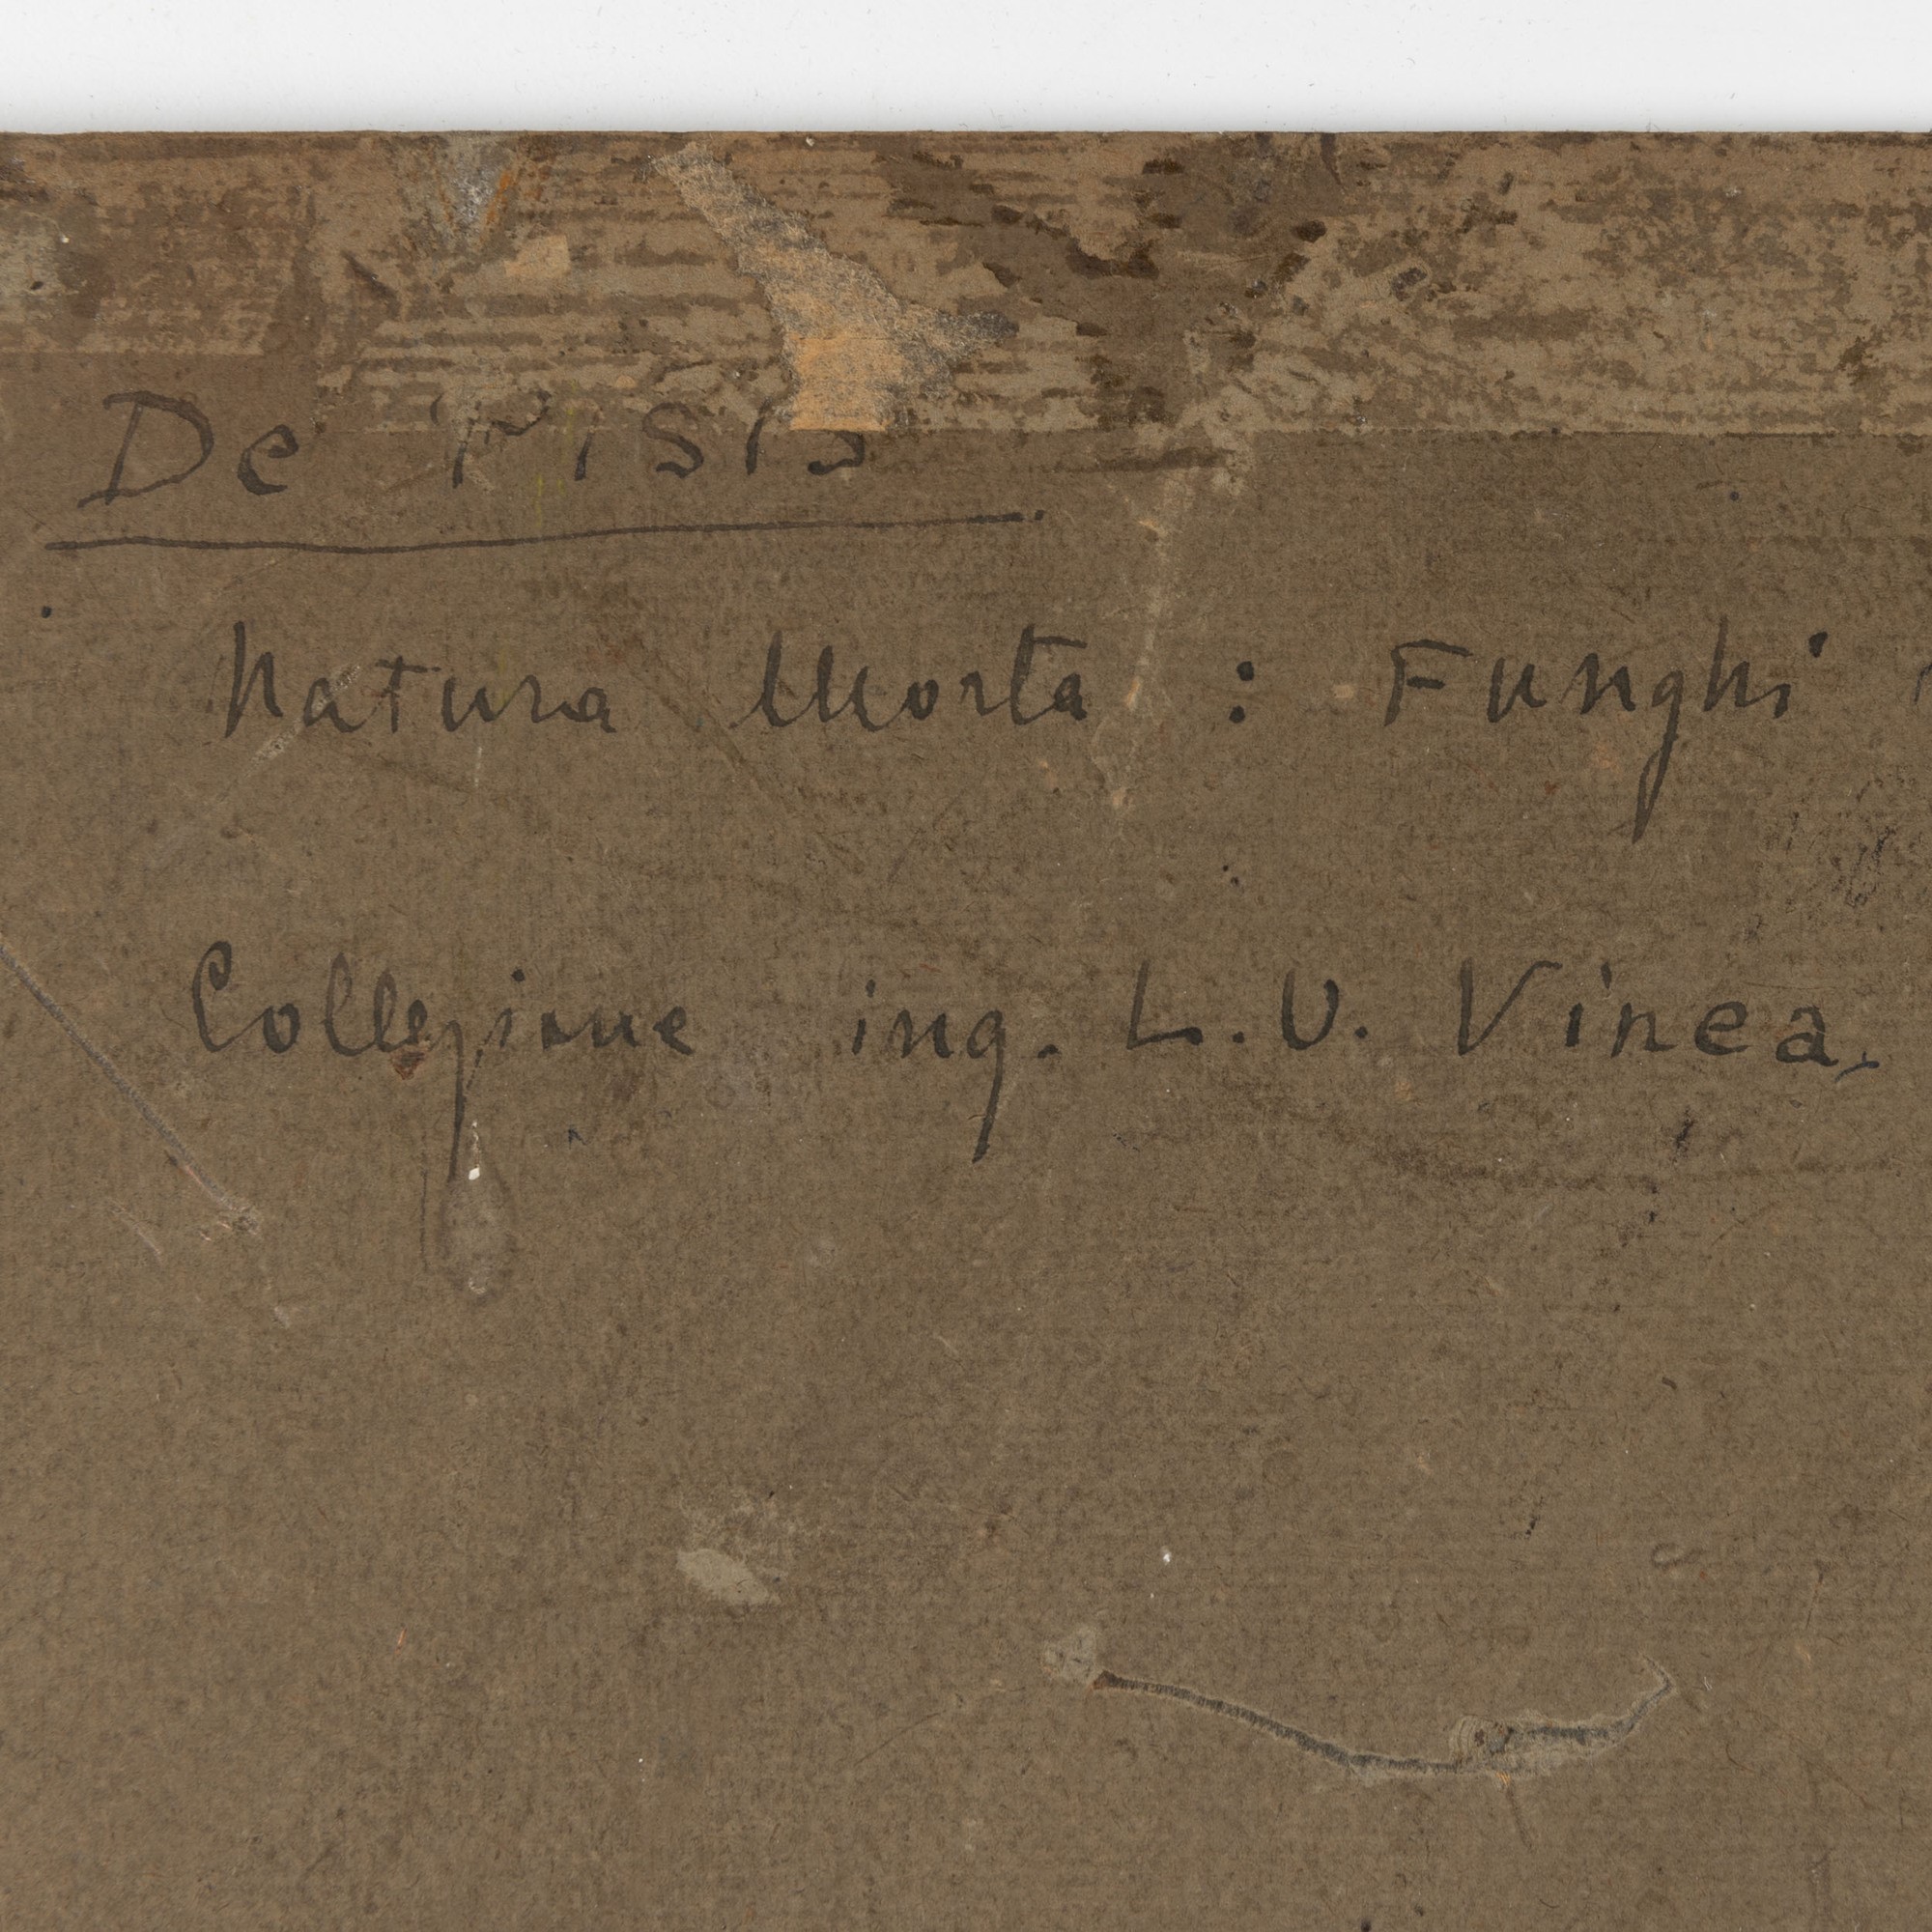 De Pisis
Natura Morta : Funghi
Collezione ing. L. U. Vinea,